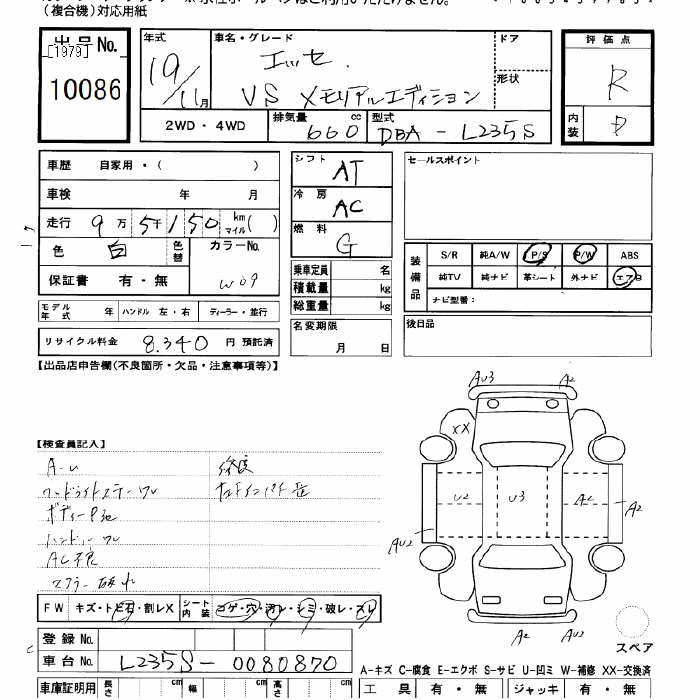 (複合機)対応用紙
出品No.
[1979]
10086
年式
19/11月
車名・グレード
エッセ
VS メモリアルエディション
ドア
形状
評価点
R
内装
D
2WD・4WD
排気量
660
cc
型式
DBA-L235S
車歴 自家用・( )
車検 年 月
走行 9万5千150 km マイル( )
色 白 色替
カラーNo.
W09
保証書 有・無
シフト
AT
冷房
AC
燃料
G
乗車定員 名
積載量 kg
総重量 kg
セールスポイント
装備品
S/R 純A/W P/S P/W ABS
純TV 純ナビ 革シート 外ナビ エアB
ナビ型番:
モデル年式 年 ハンドル 左・右 ディーラー・並行
リサイクル料金 8,340 円 預託済
名変期限
月 日
後日品
【出品店申告欄(不良箇所・欠品・注意事項等)】
【検査員記入】
A-U
ハンドル
AC不良
AU3 A2
XX
U2 U3 A2
A2
AU2
A2 AU2
スペア
FW キズ・トビ石・割レX シート内装 コゲ・穴・汚レ・シミ・破レ・スレ
登録No.
車台No. L235S-0080870
A-キズ C-腐食 E-エクボ S-サビ U-凹ミ W-補修 XX-交換済
車庫証明用 長さ cm 幅 cm 高さ cm
工具 有・無 ジャッキ 有・無